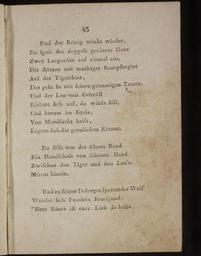 43
Und der König winkt wieder,
Da speit das doppelt geöfnete Haus
Zwey Leoparden auf einmal aus,
Die stürzen mit muthiger Kampfbegier
Auf das Tigerthier,
Das pakt sie mit seinen grimmigen Tatzen,
Und der Leu mit Gebrüll
Richtet sich auf, da wirds still,
Und herum im Kreis,
Von Mordsucht heiß,
Lagern sich die greulichen Katzen.
Da fällt von des Altans Rand
Ein Handschuh von schöner Hand
Zwischen den Tiger und den Leun
Mitten hinein.
Und zu Ritter Delorges spottender Weis'
Wendet sich Fräulein Kunigund:
"Herr Ritter ist eure Lieb so heiß